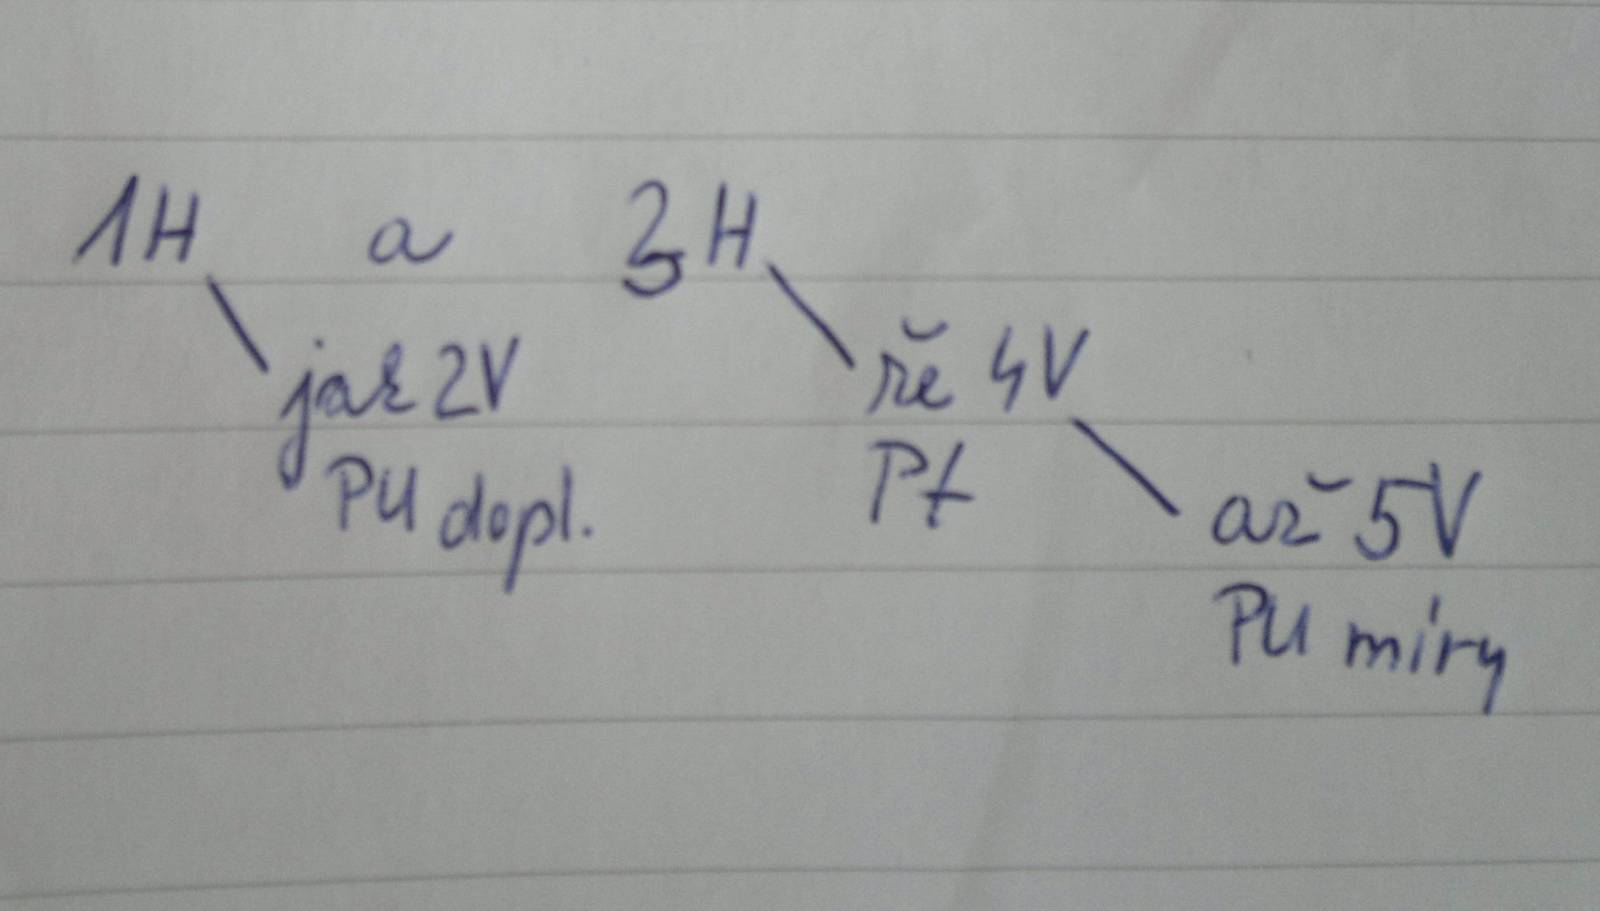 1H a 3H
jak 2V že 4V
PU dopl. Př
až 5V
PU míry